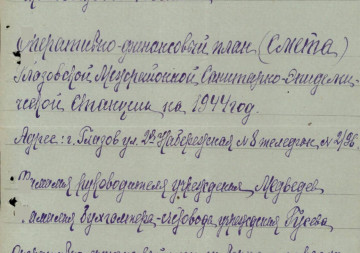 Оперативно-финансовый план (Смета)
Глазовской Межрайонной Санитарно-Эпидеми-
ческой Станции на 1944 год.
Адрес: г. Глазов ул. 2ая Набережная № 8 телефон № 2/96
Фамилия руководителя учреждения Медведев
Фамилия бухгалтера-счетовода учреждения Гусева